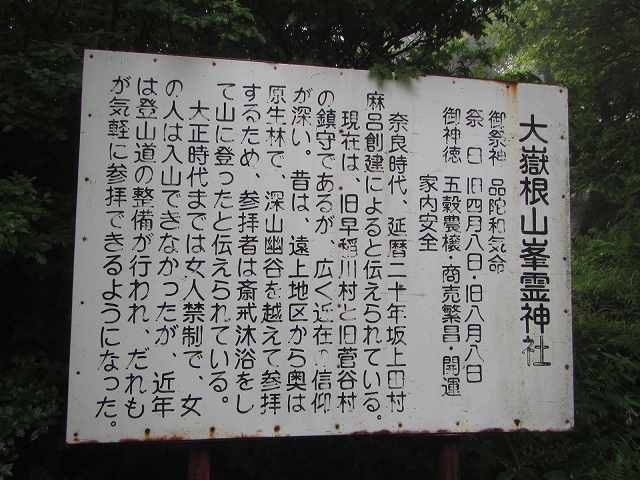 大嶽根山峯霊神社
御祭神 品陀和気命
祭 日 旧四月八日・旧八月八日
御神徳 五穀農穣・商売繁昌・開運
家内安全
奈良時代、延暦二十年坂上田村
麻呂創建によると伝えられている。
現在は、旧早稲川村と旧菅谷村
の鎮守であるが、広く近在の信仰
が深い。昔は、遠上地区から奥は
原生林で、深山幽谷を越えて参拝
するため、参拝者は斎戒沐浴をし
て山に登ったと伝えられている。
大正時代までは女人禁制で、女
の人は入山できなかったが、近年
は登山道の整備が行われ、だれも
が気軽に参拝できるようになった。